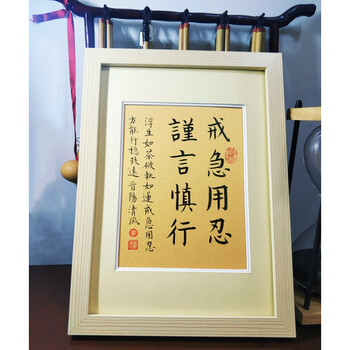 戒急用忍
謹言慎行
浮生如茶破執如蓮戒急用忍
方能行穩致遠晉陽清風